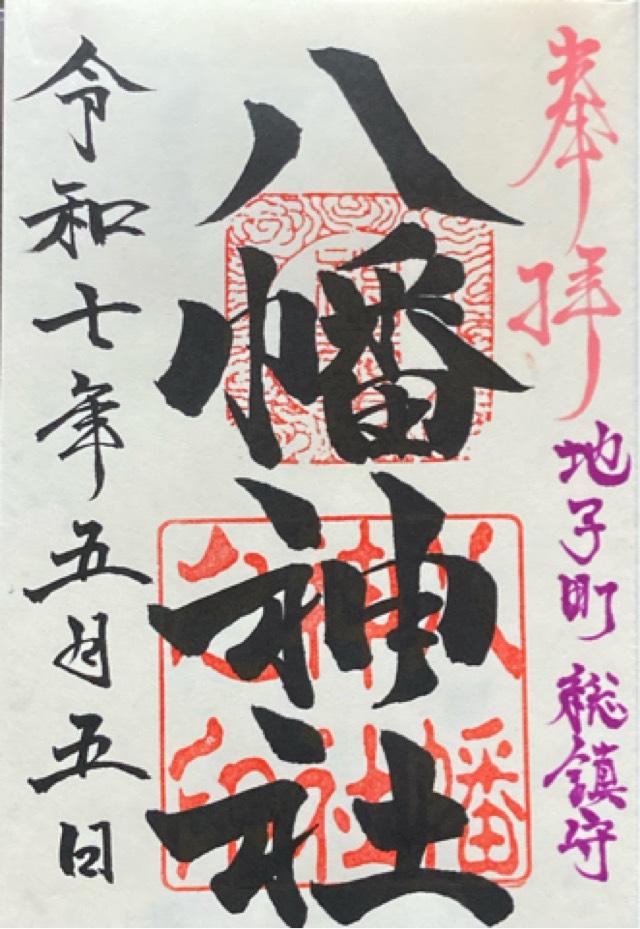 奉拝
地子町 総鎮守
八幡神社
八幡
神社
公印
令和七年五月五日